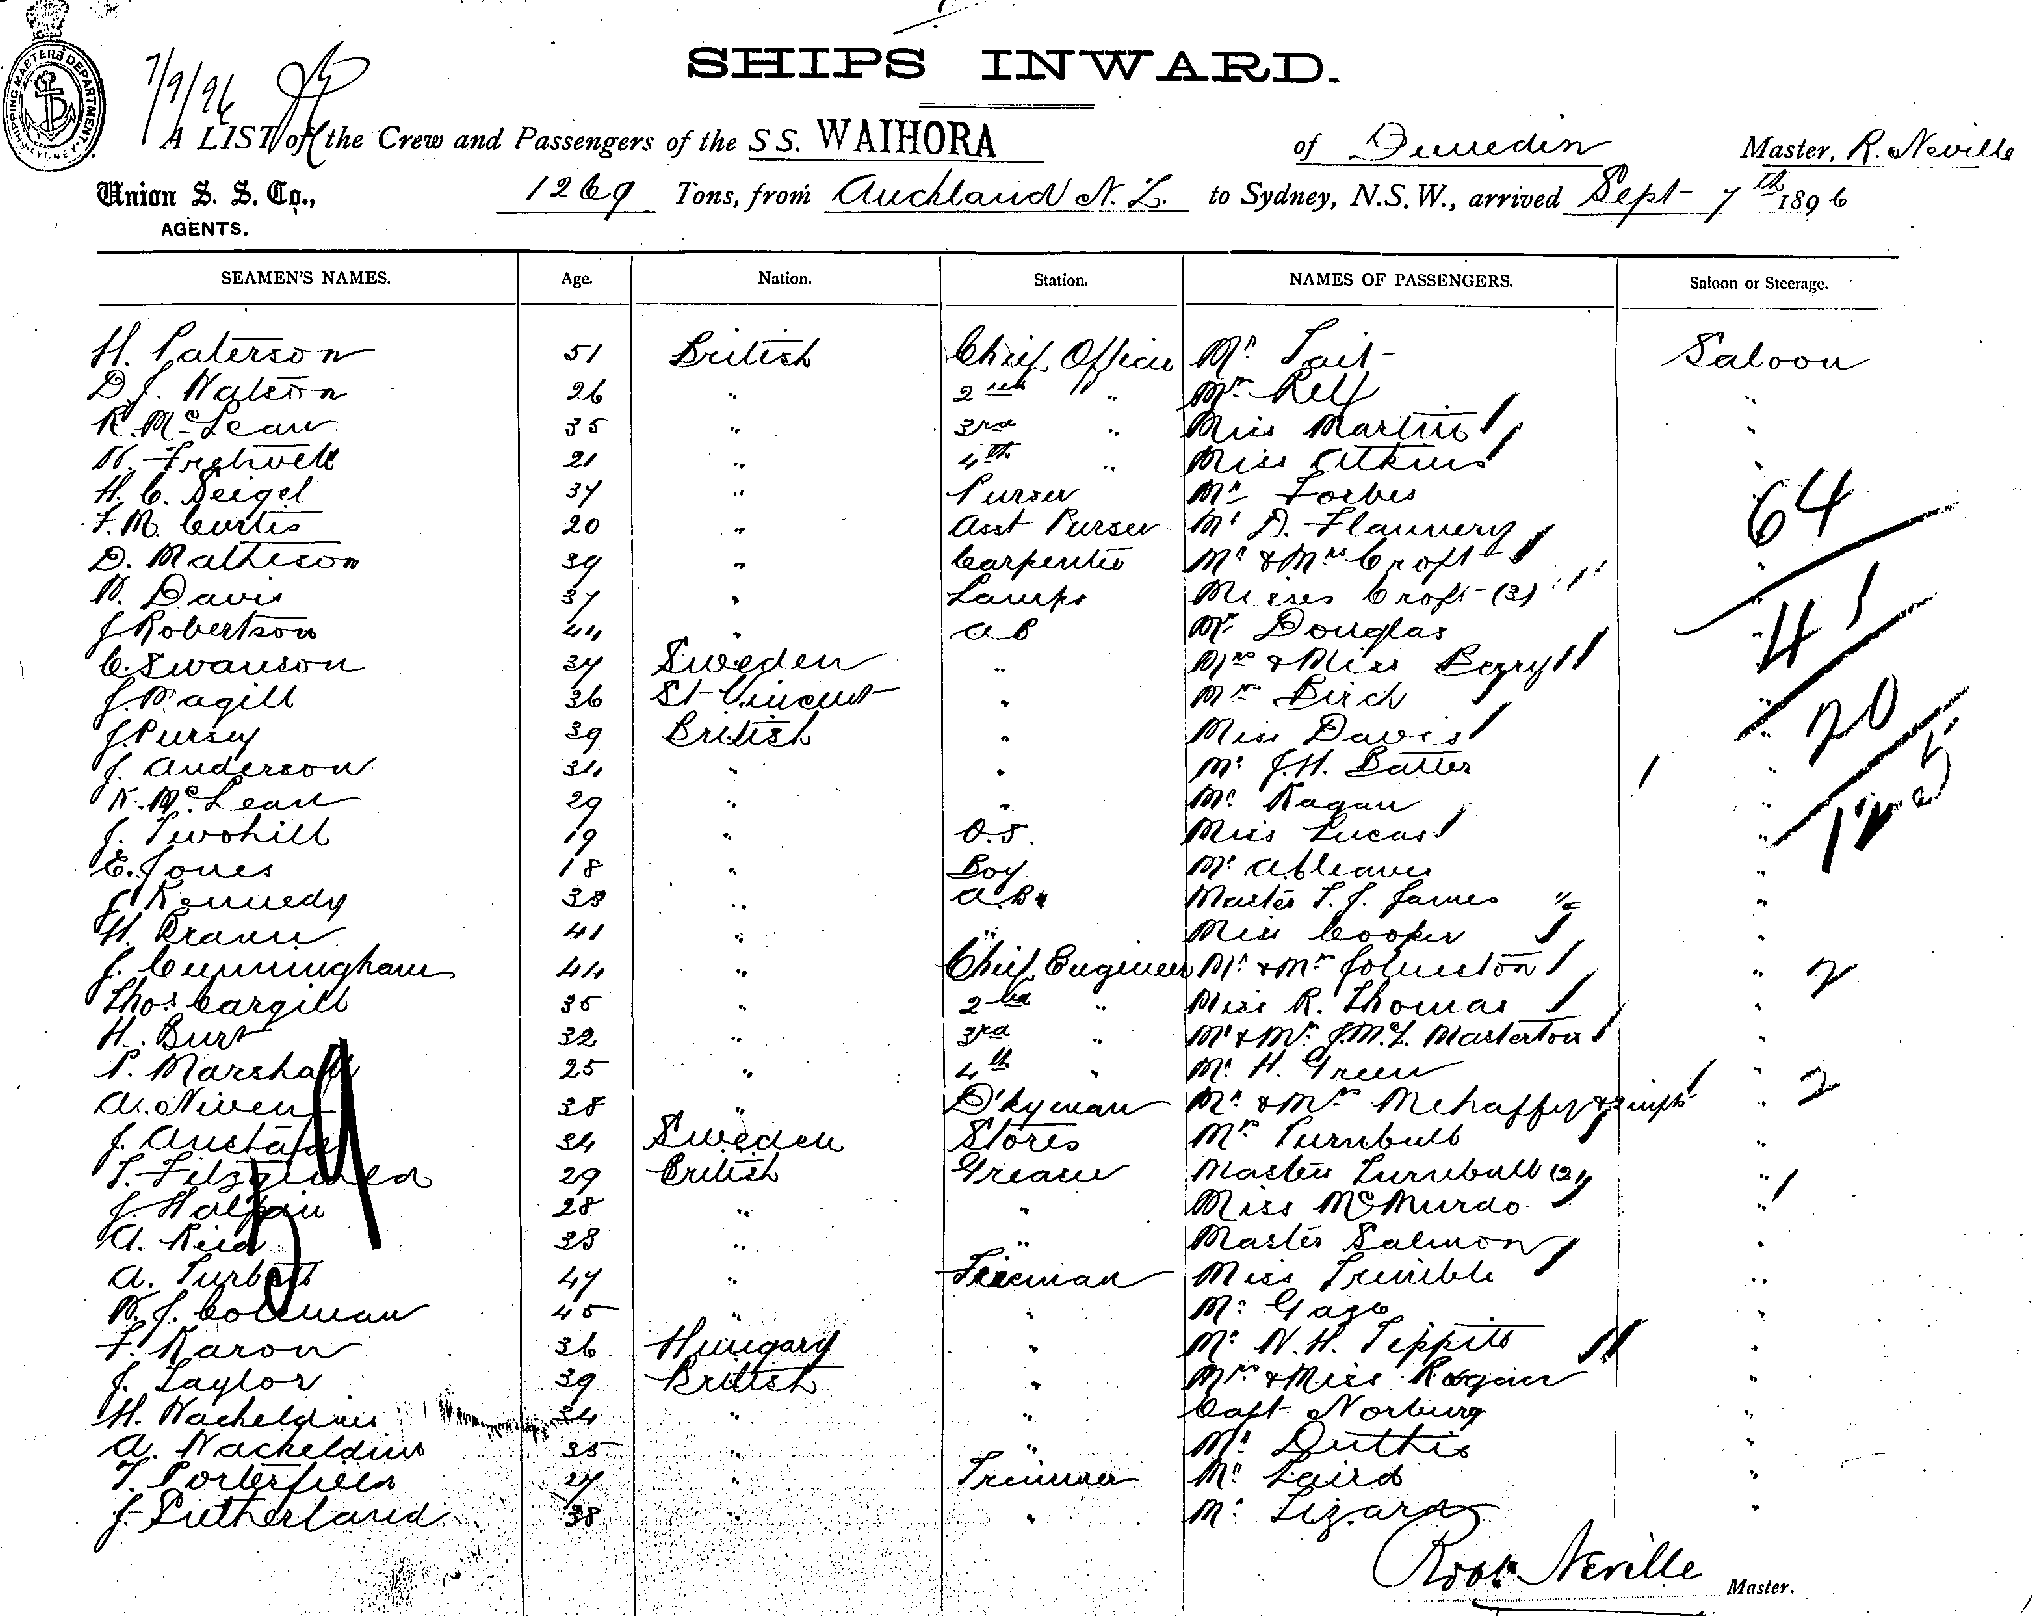 SHIPPING MASTER'S DEPARTMENT SYDNEY
7/9/96
SHIPS INWARD.
A LIST of the Crew and Passengers of the SS. WAIHORA of Dunedin Master, R. Neville
Union S. S. Co., 1269 Tons, from Auckland N.Z. to Sydney, N.S.W., arrived Sept 7th 1896
AGENTS.
SEAMEN'S NAMES. Age. Nation. Station. NAMES OF PASSENGERS. Saloon or Steerage.
H. Paterson 51 British Chief Officer Mr Tait Saloon
D. J. Watson 26 " 2nd " Mr Relf "
R. McLean 35 " 3rd " Miss Martin "
W. Fretwell 21 " 4th " Miss Atkins "
H. C. Seigel 37 " Purser Mr Forbes " 64
F. M. Curtis 20 " Asst Purser Mr D. Flannery
D. Matheson 39 " Carpenter Mr & Mrs Croft "
W. Davis 37 " Lamps Misses Croft (3) "
J Robertson 44 " AB Mr Douglas " 41
C. Swanson 37 Sweden " Mrs & Miss Berry
J. Magill 36 St Vincent " Mrs Birch " 20
J. Pursey 39 British " Miss Davis "
J. Anderson 34 " " Mr J. H. Batter "
K. McLean 29 " " Mr Kagan " 125
J. Twohill 19 " O.S. Miss Lucas "
E. Jones 18 " Boy Mr "
J Kennedy 38 " A.B. Master T. J. James "
H. 41 " " Miss Cooper "
J. Cunningham 44 " Chief Engineer Mr & Mrs Johnston " 2
Thos Cargill 35 " 2nd " Miss R. Thomas "
H. Burt 32 " 3rd " Mr & Mrs J. Mc L. Masterton "
P. Marshall 25 " 4th " Mr H. Green "
A. Niven 38 " D'kyman Mr & Mrs Mehaffey & " 2
J. 34 Sweden Stores Mrs Turnbull "
T. Fitzgerald 29 British Greaser Masters Turnbull (2) "
J. Halpin 28 " " Miss McMurdo "
A. Reid 38 " " Master Salmon "
A. 47 " Fireman Miss Trimble "
W. J. Coleman 45 " " Mr Gage "
F. Karon 36 Hungary " Mr W. H. Teppits "
J. Taylor 39 British " Mrs & Miss "
H. Nacheldius 34 " " Capt Norburg "
A. Nacheldius 35 " " Mr Duthie "
T. Porterfield 27 " Trimmer Mr Laird "
J. Sutherland 38 " " Mr Lizard "
Robt Neville Master.